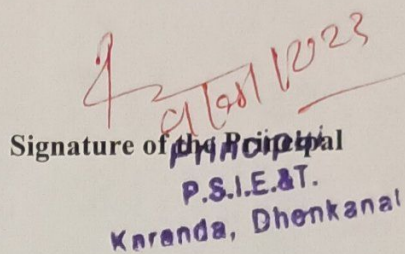 Signature of the Principal
Principal
P.S.I.E.&T.
Karanda, Dhenkanal